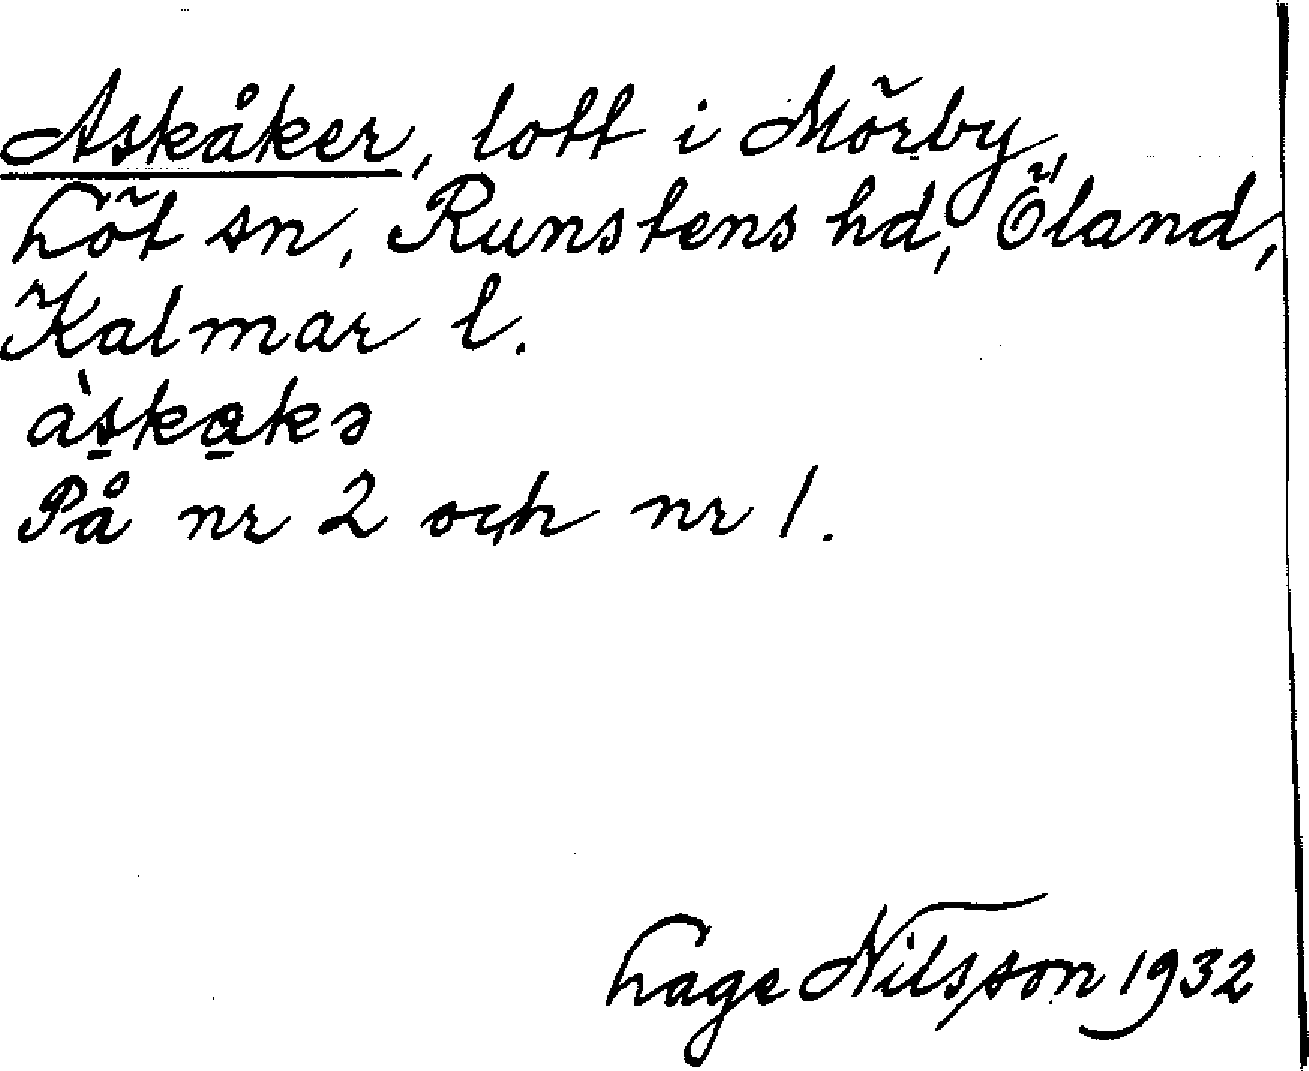 Askåker, lott i Mörby,
Löt sn, Runstens hd, Öland,
Kalmar l.
às̲ka̲kə
På nr 2 och nr 1.
Lage Nilsson 1932